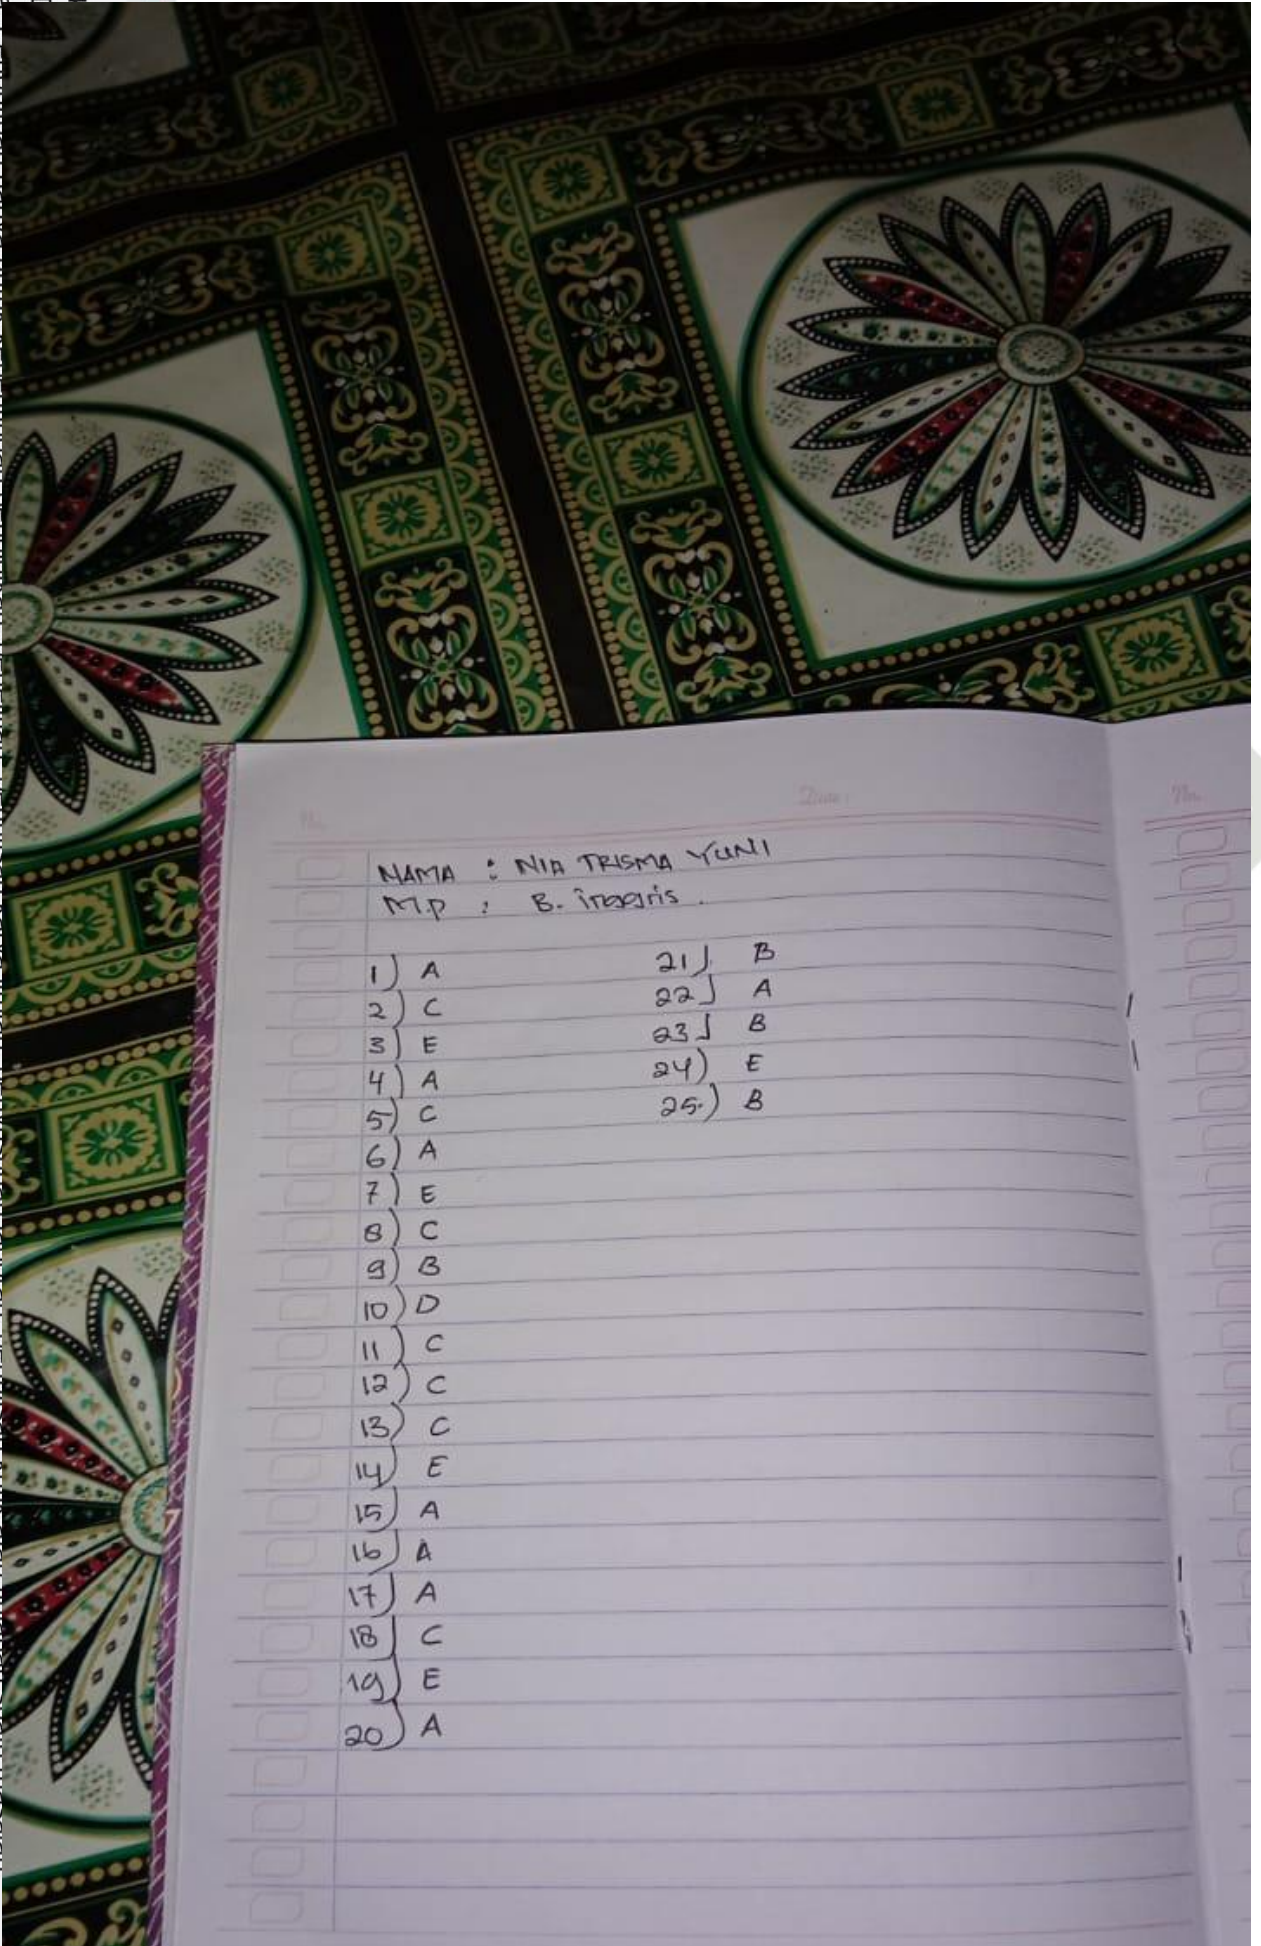 No.
Date:
No.
NAMA : NIA TRISMA YUNI
M.P : B. inggris.
1) A
2) C
3) E
4) A
5) C
6) A
7) E
8) C
9) B
10) D
11) C
12) C
13) C
14) E
15) A
16) A
17) A
18) C
19) E
20) A
21) B
22) A
23) B
24) E
25.) B